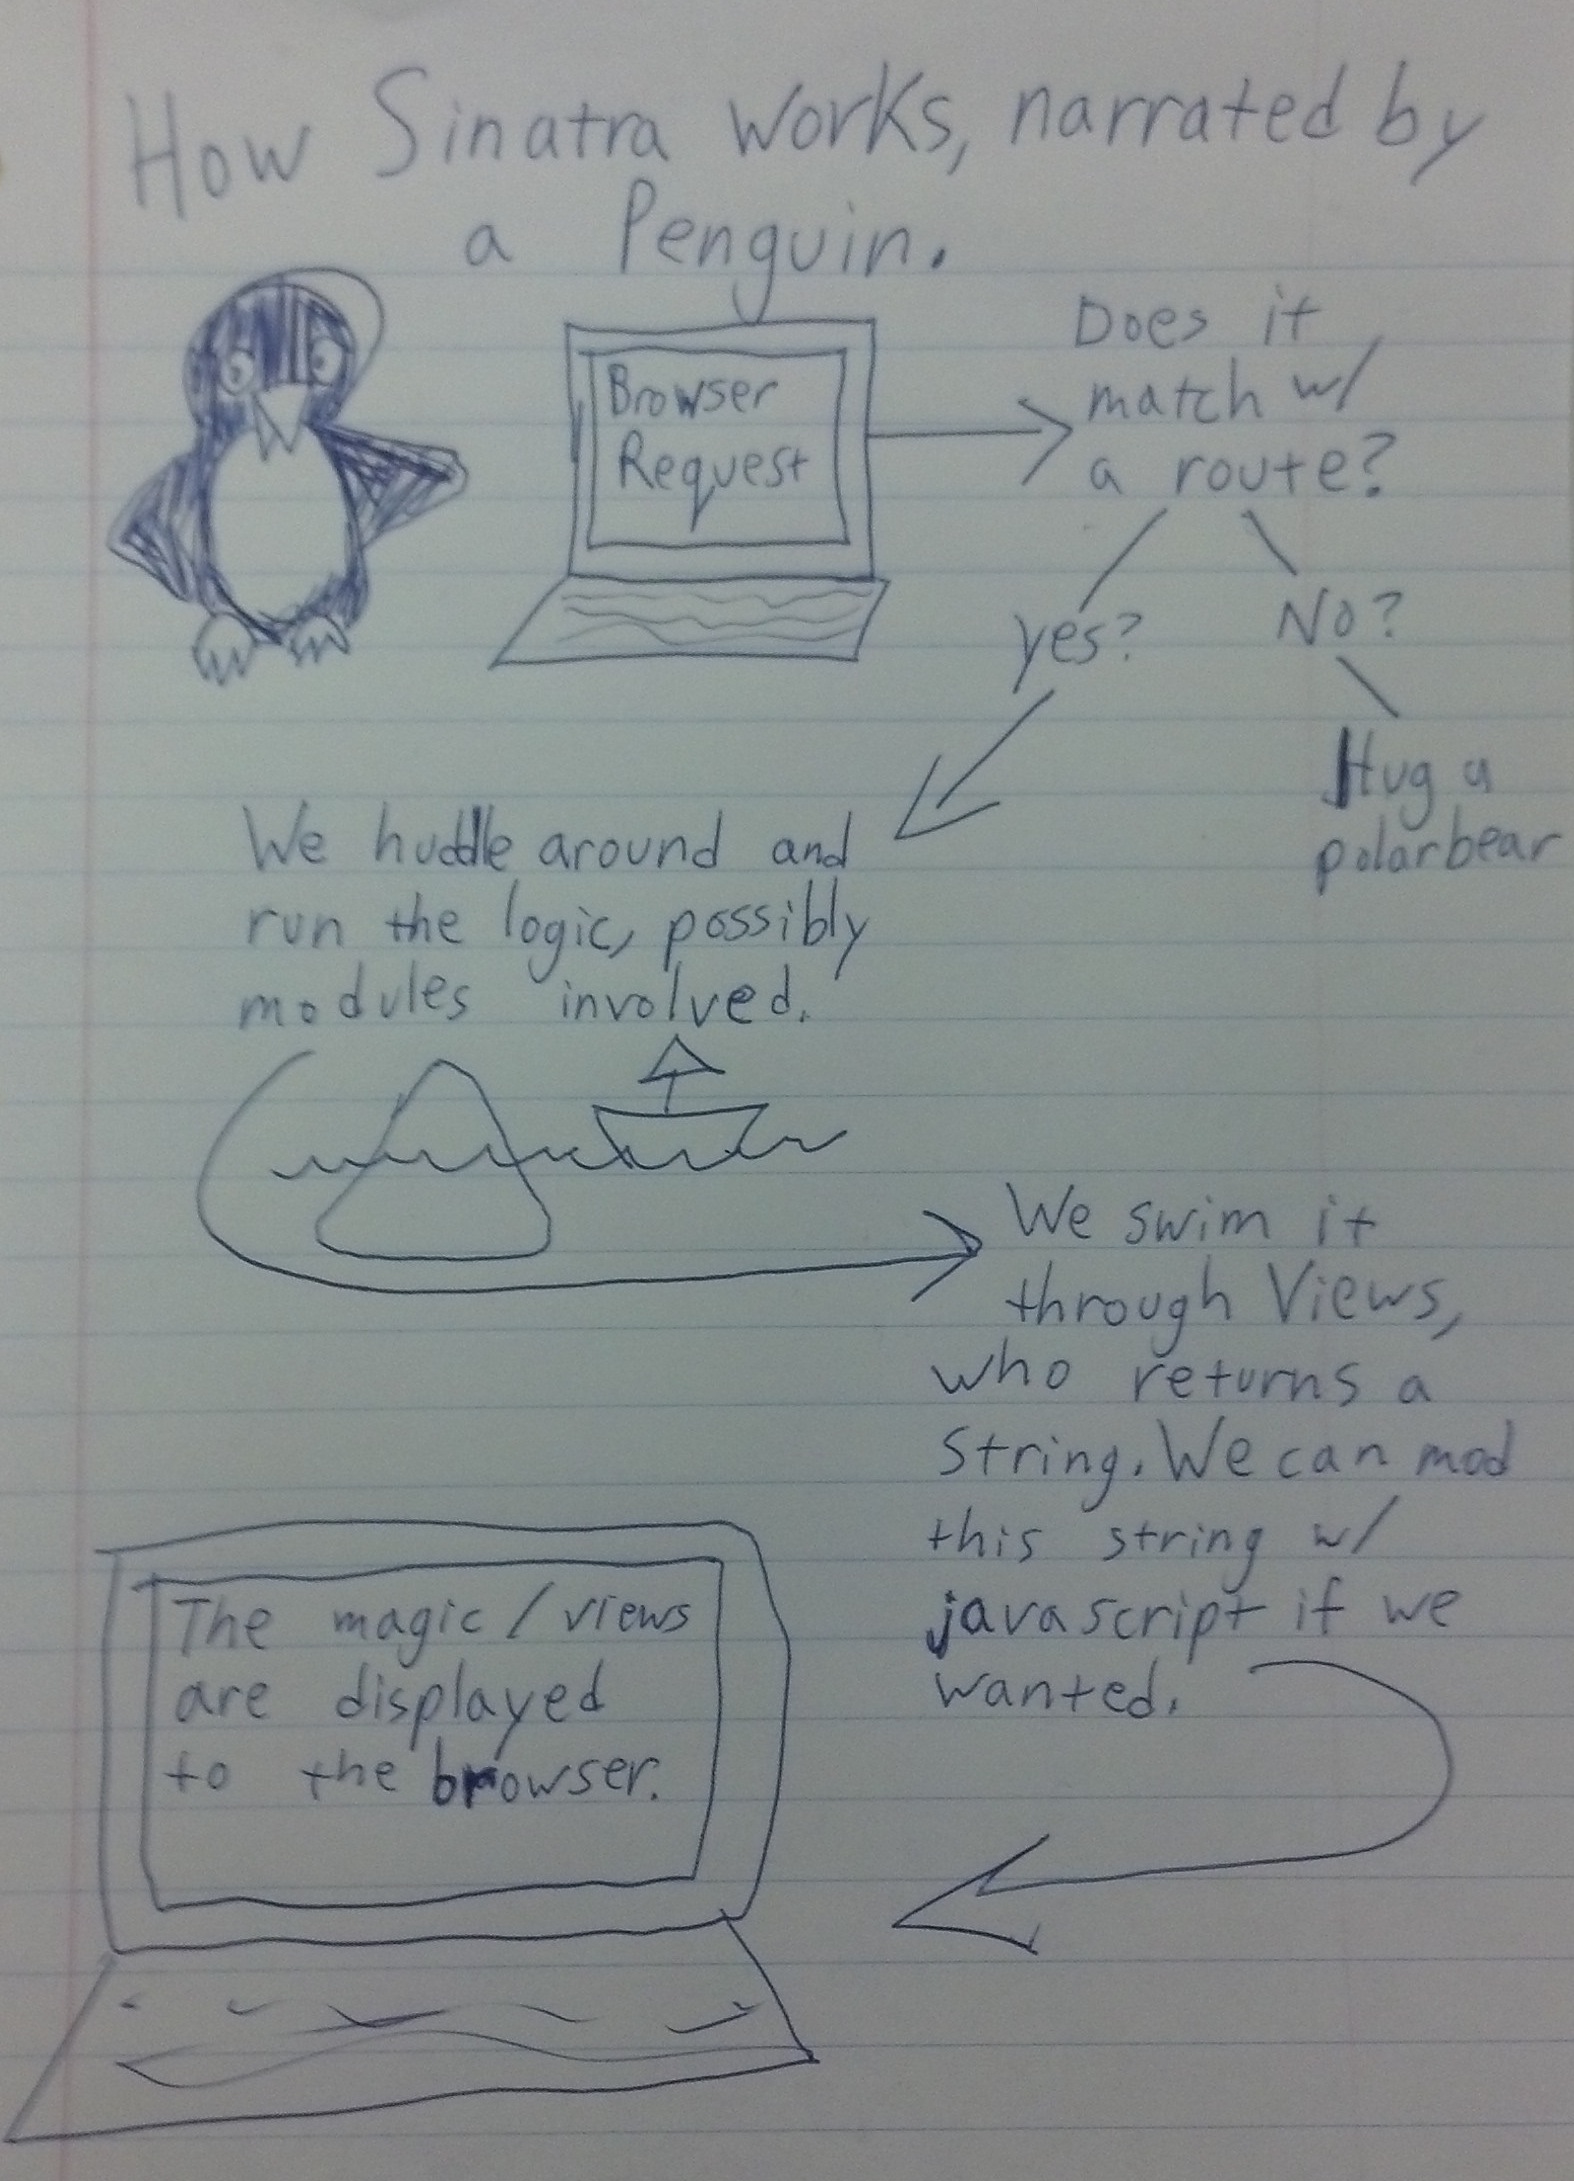 How Sinatra works, narrated by
a Penguin.
Browser
Request
Does it
match w/
a route?
yes?
No?
Hug a
polarbear
We huddle around and
run the logic, possibly
modules involved.
We swim it
through Views,
who returns a
String. We can mod
this string w/
javascript if we
wanted.
The magic/views
are displayed
to the browser.